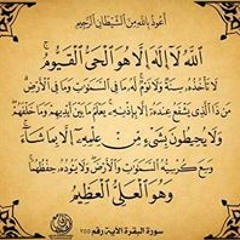 أعوذ بالله من الشيطان الرجيم
ٱللَّهُ لَآ إِلَٰهَ إِلَّا هُوَ ٱلْحَىُّ ٱلْقَيُّومُ ۚ
لَا تَأْخُذُهُۥ سِنَةٌ وَلَا نَوْمٌ ۚ لَّهُۥ مَا فِى ٱلسَّمَٰوَٰتِ وَمَا فِى ٱلْأَرْضِ ۗ
مَن ذَا ٱلَّذِى يَشْفَعُ عِندَهُۥٓ إِلَّا بِإِذْنِهِۦ ۚ يَعْلَمُ مَا بَيْنَ أَيْدِيهِمْ وَمَا خَلْفَهُمْ ۖ
وَلَا يُحِيطُونَ بِشَىْءٍ مِّنْ عِلْمِهِۦٓ إِلَّا بِمَا شَآءَ ۚ
وَسِعَ كُرْسِيُّهُ ٱلسَّمَٰوَٰتِ وَٱلْأَرْضَ ۖ وَلَا يَـُٔودُهُۥ حِفْظُهُمَا ۚ
وَهُوَ ٱلْعَلِىُّ ٱلْعَظِيمُ
سورة البقرة الآية رقم ٢٥٥